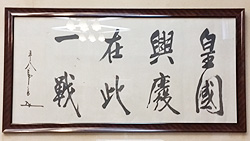 皇國
興廢
在此
一戰